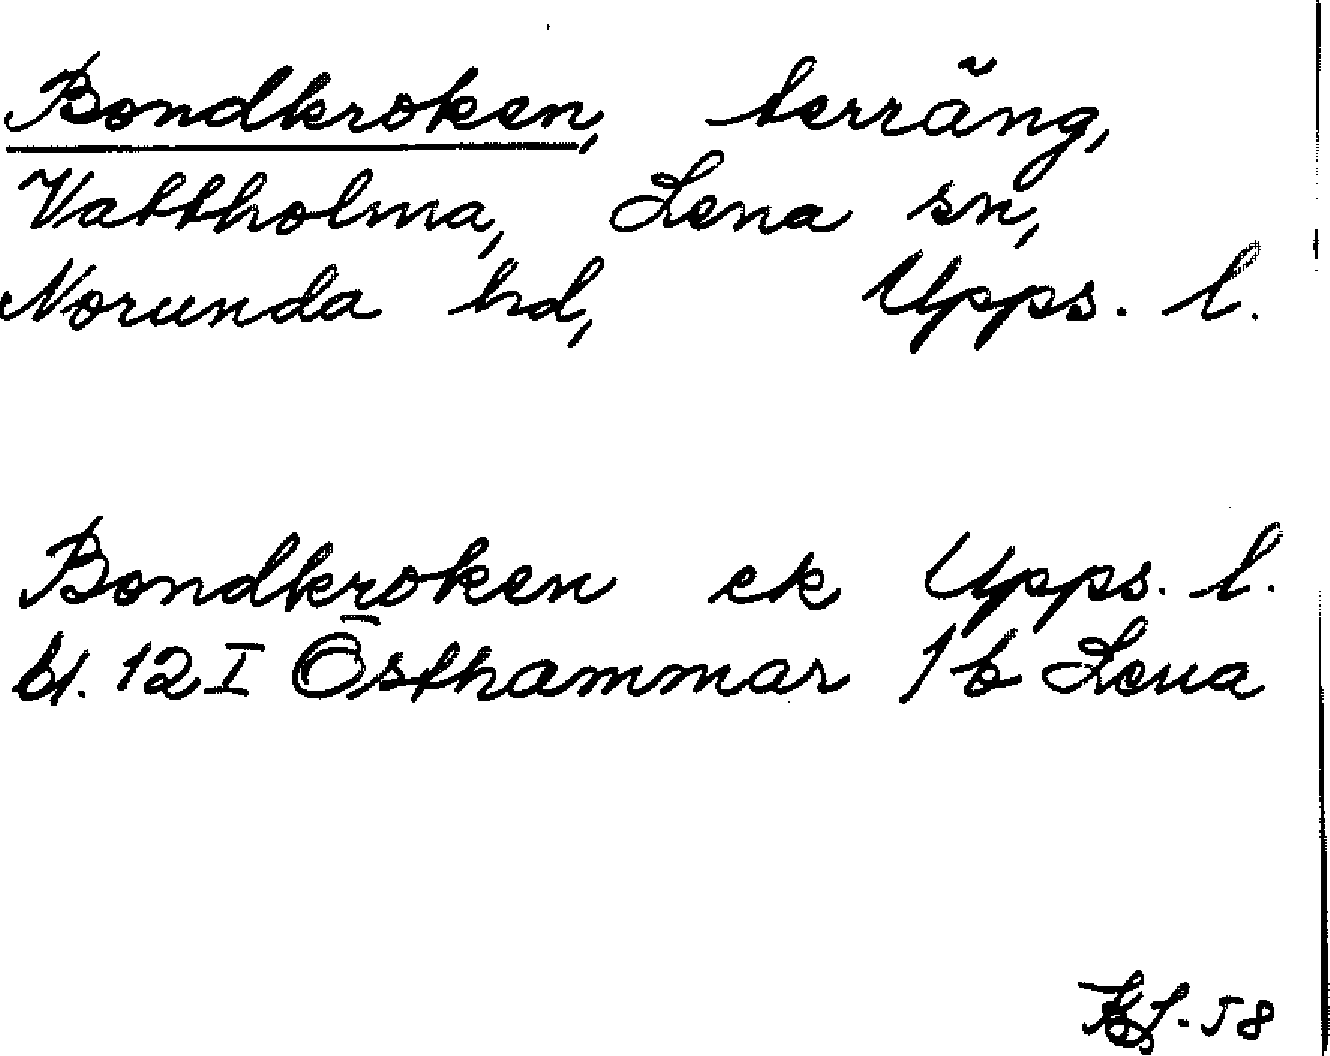 Bondkroken, terräng,
Vattholma, Lena sn,
Norunda hd, Upps. l.
Bondkroken ek Upps. l.
bl. 12 I Östhammar 1 b Lena
-58